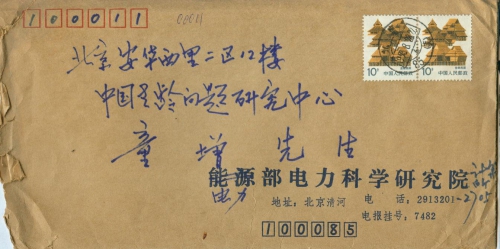 100011
北京安华西里二区12楼
中国老龄问题研究中心
童增先生
10分 中国人民邮政
10分 中国人民邮政
能源部电力科学研究院
电力
地址：北京清河 电话：2913201-2705
电报挂号：7482
100085